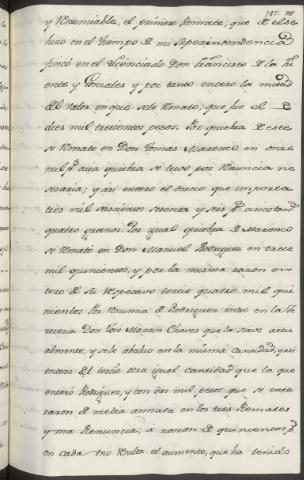 y Renunciables, el primero Remate, que de el se
hizo en el tiempo de mi Superintendencia
fincó en el Licenciado Don Francisco de la
ente y Gonzales y por tanto enteró la mitad
del valor en que se le Remató, que fue el de
diez mil tresientos pesos. Por quiebra de este
se Remató en Don Tomas Mazeneo en once
mil p.s cuya quiebra se tuvo por Renuncia ne
sesaria; y asi enteró el tercio que importa
tres mil seiscientos sesenta y seis p.s cinco tom.s
quatro granos. Por igual quiebra de Mazeneo
se Remató en Don Manuel Rodriguez en trece
mil quinientos, y por la misma razon en
teró de su respectivo tercio quatro mil qui
nientos. Por Renuncia de Rodriguez entró en la Te
soreria Don José Martin Chaves que la sirve actu
almente, y se le abaluo en la misma cantidad, y asi
enteró el tercio otra igual cantidad que la que
enteró Rodriguez, y con dos mil pesos que se ente
raron de media annata en los tres Remates
y una Renuncia, á razon de quinientos p.s
en cada uno Resulta el aumento, que ha tenido